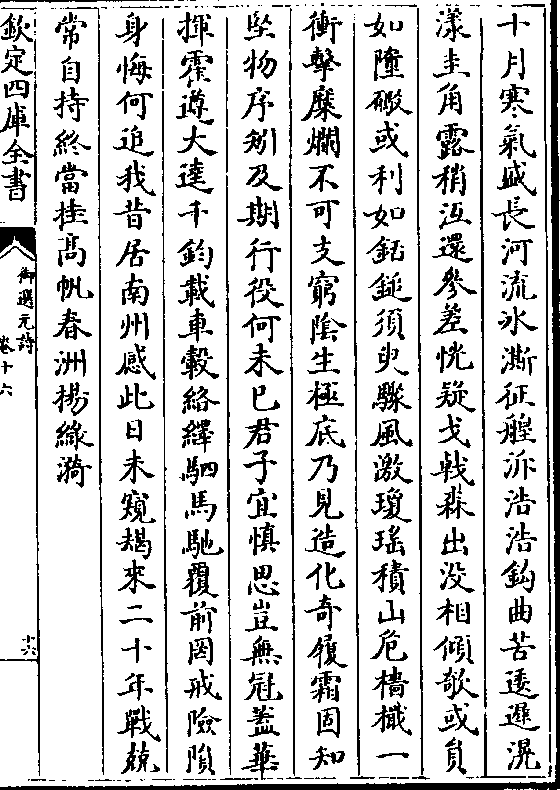 十月寒氣盛長河流冰澌征艎泝浩浩鈎曲苦逶遲滉
漾圭角露稍沍還參差恍疑戈戟森出没相傾欹或負
如隆礮或利如銛鎚須臾驟風激瓊瑤積山危檣檝一
衝擊糜爛不可支窮陰生極底乃見造化奇履霜固知
堅物序矧及期行役何未已君子宜慎思豈無冠蓋華
揮霍遵大逵千鈞載車轂絡繹駟馬馳覆前罔戒險隕
身悔何追我昔居南州感此日未窺朅來二十年戰兢
常自持終當挂髙帆春洲楊綠漪
欽定四庫全書
御選元詩
卷十六
十六